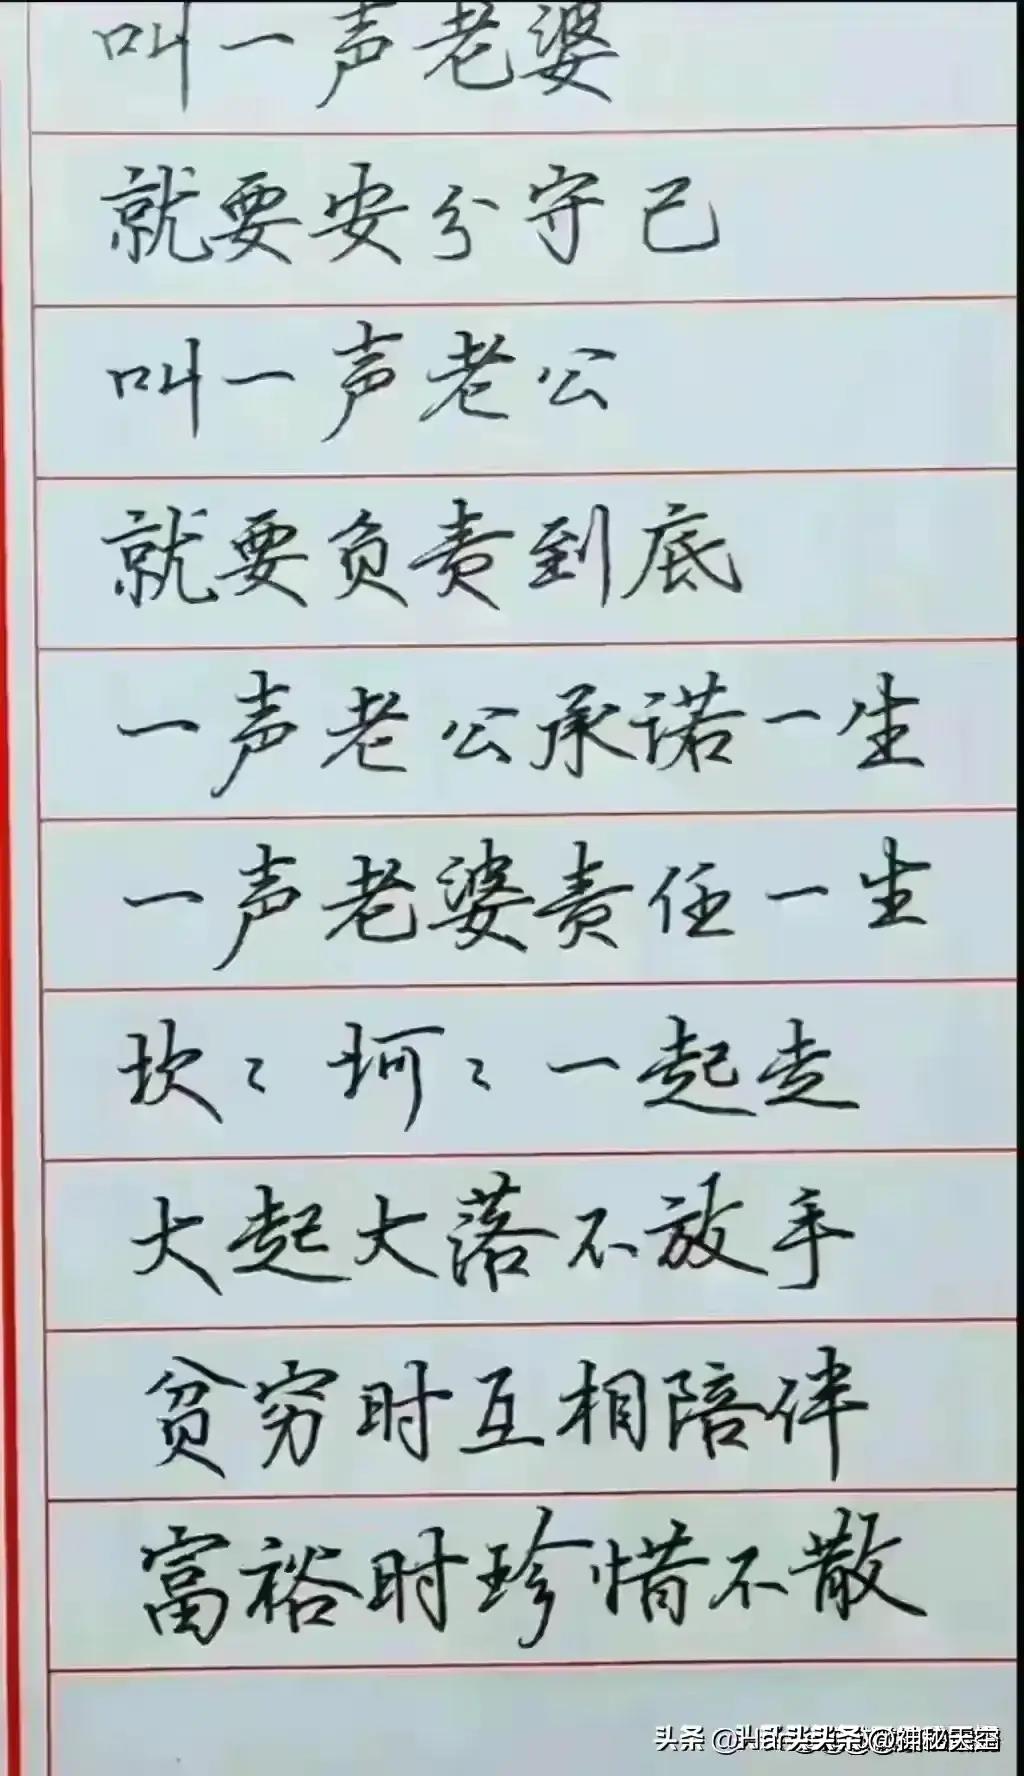 叫一声老婆
就要安分守己
叫一声老公
就要负责到底
一声老公承诺一生
一声老婆责任一生
坎〻坷〻一起走
大起大落不放手
贫穷时互相陪伴
富裕时珍惜不散
头条 @
头条 @神秘天空